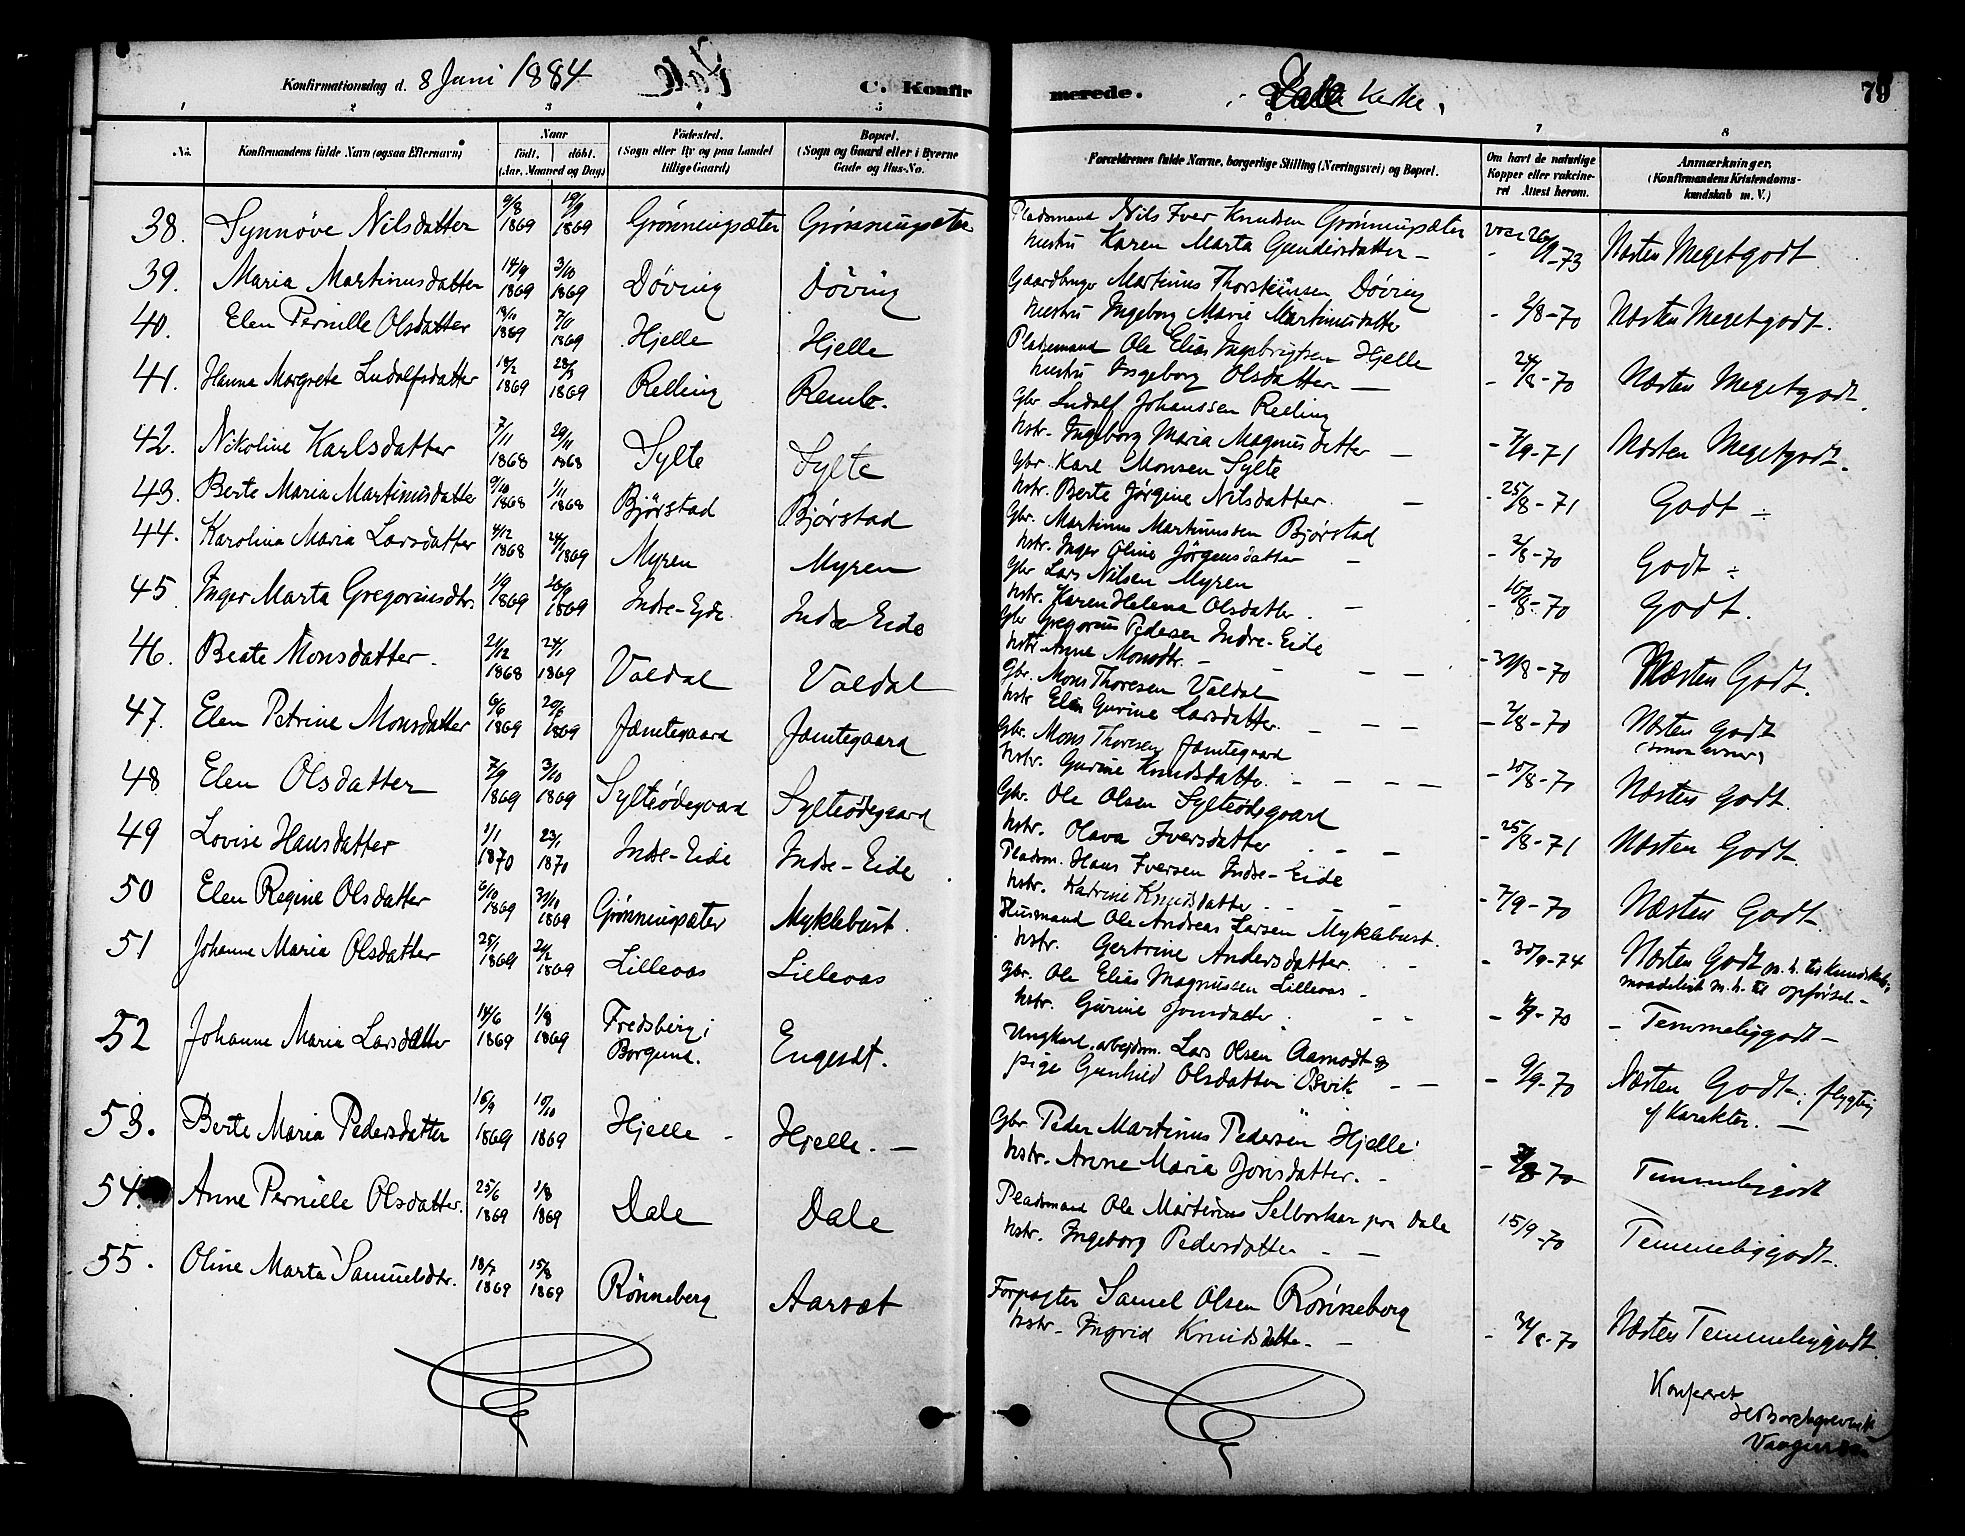 Konfirmationsdag d. 8 Juni 1884
C. Konfirmerede. i Dale Kirke.
79
1 2 3 4 5 6 7 8
No.
Konfirmandens fulde Navn (ogsaa Efternavn)
Naar
født. døbt.
(Aar, Maaned og Dag)
Fødested.
(Sogn eller By og paa Landet
tillige Gaard)
Bopæl.
(Sogn og Gaard eller i Byerne
Gade og Hus-No.
Forældrenes fulde Navne, borgerlige Stilling (Næringsvei) og Bopæl.
Om havt de naturlige
Kopper eller vakcine-
ret Attest herom.
Anmærkninger.
(Konfirmandens Kristendoms-
kundskab m. V.)
38. Synnøve Nilsdatter 9/8 1869 19/9 1869 Grønningsæter Grønningsæter Pladsmand Nils Iver Knudsen Grønningsæter vac 26/9-73 Næsten Megetgodt
hustru Karen Marta Gundersdatter -
39. Maria Martinusdatter 14/9 1869 3/10 1869 Døving Døving Gaardbruger Martinus Thorsteinsen Døving - 2/8-70 Næsten Megetgodt.
hustru Ingeborg Marie Martinusdatter
40. Elen Pernille Olsdatter 1869 7/11 1869 Hjelle Hjelle Pladsmand Ole Elias Ingebrigtsen Hjelle - 24/8-70 Næsten Megetgodt.
hustru Ingeborg Olsdatter -
41. Hanna Margrete Ludolfsdatter 18/2 1869 28/3 1869 Relling Remb. Gbr Ludolf Johanssen Relling - 7/9-71 Næsten Megetgodt.
hstr. Ingeborg Maria Magnusdatter -
42. Nikoline Karlsdatter 7/11 1868 29/11 1868 Sylte Sylte Gbr. Karl Monsen Sylte - 25/8-71 Godt -
hstr. Berte Jørgine Nilsdatter. -
43. Berte Maria Martinusdatter 9/10 1868 1/11 1868 Bjørstad Bjørstad Gbr. Martinus Martinussen Bjørstad - 2/8-70 Godt -
hstr. Inger Oline Jørgensdatter -
44. Karolina Maria Larsdatter 4/12 1868 24/1 1869 Myren Myren Gbr Lars Nilsen Myren - 10/8-70 Godt.
hstr. Karen Helena Olsdatter. -
45 Inger Marta Gregoriusdtr. 1/9 1869 26/9 1869 Indre-Eide Indre Eide Gbr Gregorius Pedersen Indre-Eide - 30/8-70 Næsten Godt.
hstr Anne Monsdtr. - -
46. Beate Monsdatter. 21/12 1868 24/1 1869 Valdal Valdal Gbr. Mons Thoresen Valdal - 2/8-70 Næsten Godt
hstr Elen Gurine Larsdatter. -
47. Elen Petrine Monsdatter 6/6 1869 20/6 1869 Jamtegaard Jamtegaard Gbr. Mons Thoresen Jamtegaard - 10/8-70 Næsten Godt.
hstr. Gurine Knudsdatter. -
48 Elen Olsdatter 7/9 1869 3/10 1869 Sylteødegaard Sylteødegaard Gbr. Ole Olsen Sylteødegaard - 25/8-71 Næsten Godt.
hstr. Olava Iversdatter -
49 Lovise Hansdatter 1/1 1870 23/1 1870 Indre-Eide Indre-Eide Pladsm. Hans Iversen Indre-Eide - 7/9-70 Næsten Godt.
hstr. Katrine Knudsdatter. -
50 Elen Regine Olsdatter 6/10 1869 30/10 1869 Grønningsæter Myklebust. Husmand Ole Andreas Larsen Myklebust. - 30/9-74 Næsten Godt m. h. til Kundskab,
hstr. Gertrine Andersdatter. - maadelig m. h. til opførsel -
51 Johanne Maria Olsdatter 25/1 1869 21/2 1869 Lilleaas Lilleaas Gbr. Ole Elias Magnussen Lilleaas - - 70 - Temmeliggodt -
hstr. Gurine Jonsdatter. -
52 Johanne Maria Larsdatter 14/6 1869 1/8 1869 Fredsberg i Borgund. Engeset. Ungkarl, arbejdsm. Lars Olsen Aamodt og - 9/9-70 Næsten Godt; flygtig
pige Gunhild Olsdatter Osvik - af Karakter. -
53. Berte Maria Pedersdatter 16/9 1869 10/10 1869 Hjelle - Hjelle. - Gbr Peder Martinus Pedersen Hjelle - 2/8-70 Temmeliggodt
hstr. Anne Maria Jonsdatter. -
54. Anne Pernille Olsdatter. 25/6 1869 1/8 1869 Dale Dale Pladsmand Ole Martinus Selboskar paa Dale 15/9-70 Temmeliggodt.
hstr. Ingeborg Pedersdatter - -
55. Oline Marta Samuelsdtr. 18/7 1869 15/8 1869 Rønneberg Aarsæt Forpagter Samuel Olsen Rønneberg - 30/8-70 Næsten Temmeliggodt.
hstr. Ingrid Knudsdatter. -
Konfereret